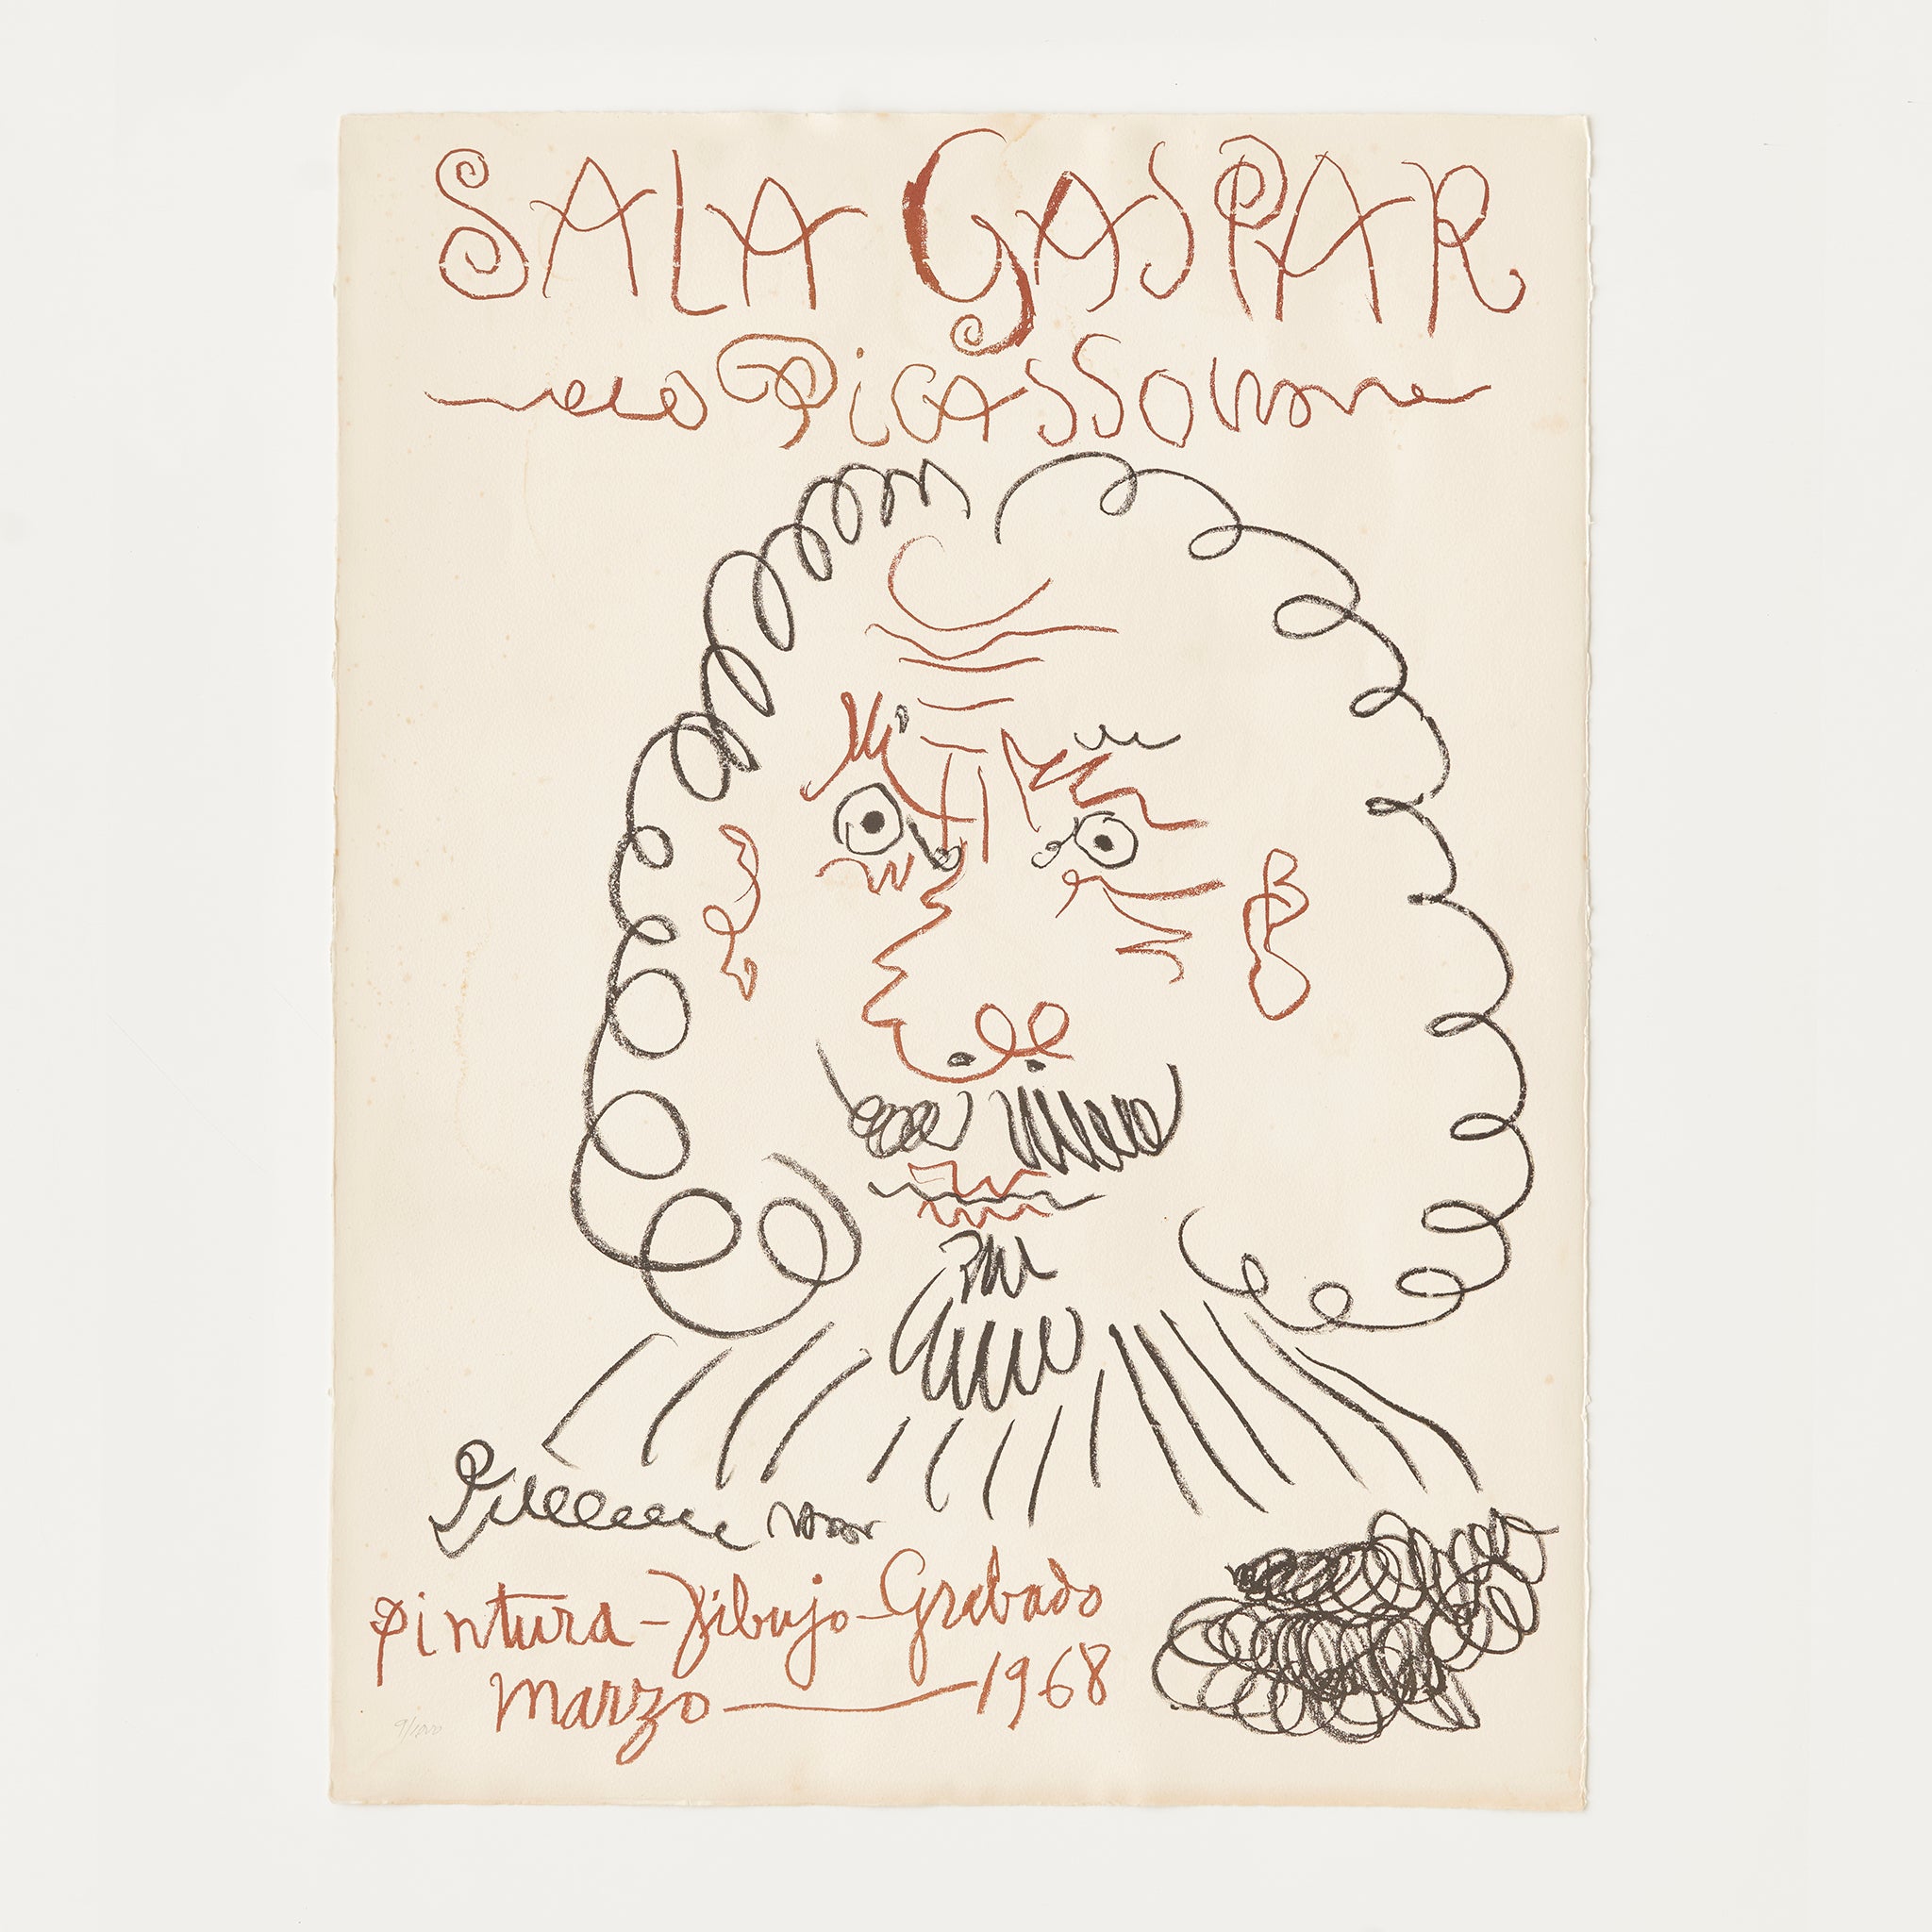 SALA GASPAR
Picasso
pintura - Dibujo - Grabado
marzo — 1968
9/1000